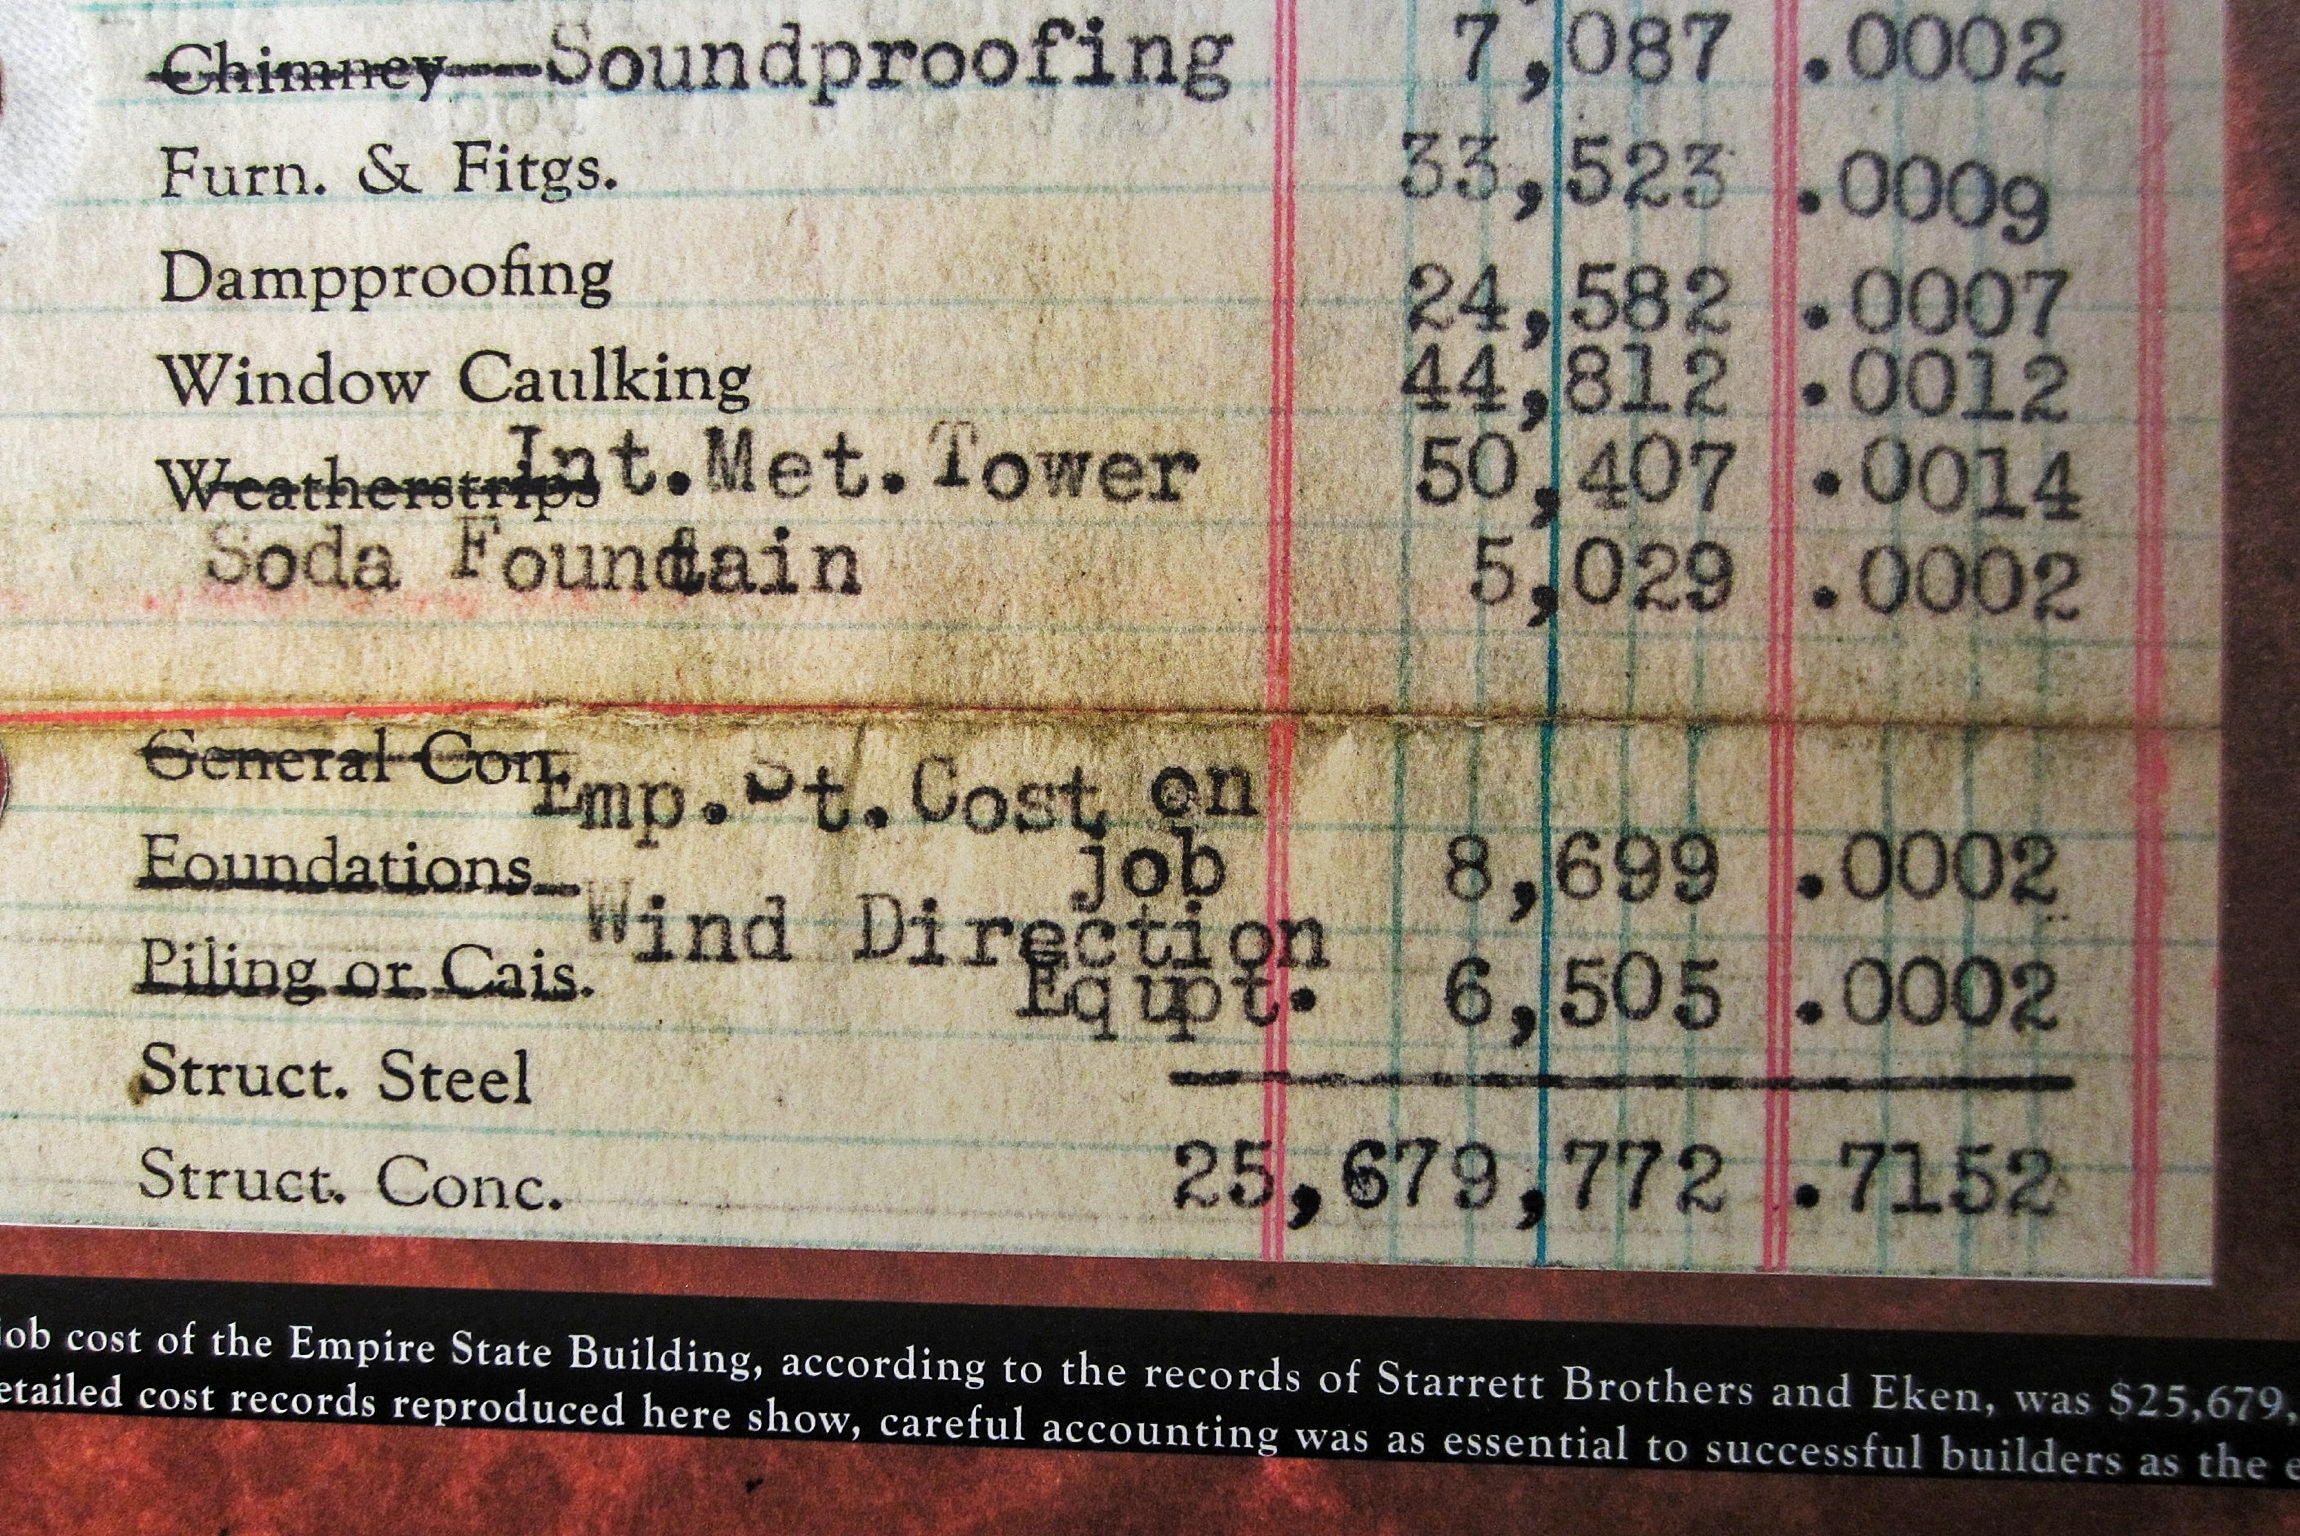 Chimney Soundproofing 7,087 .0002
Furn. & Fitgs. 33,523 .0009
Dampproofing 24,582 .0007
Window Caulking 44,812 .0012
Weatherstrips Int.Met.Tower 50,407 .0014
Soda Fountain 5,029 .0002
General Con. Emp.St.Cost on
Foundations job 8,699 .0002
Wind Direction
Piling or Cais. Equpt. 6,505 .0002
Struct. Steel
Struct. Conc. 25,679,772 .7152
job cost of the Empire State Building, according to the records of Starrett Brothers and Eken, was $25,679,
etailed cost records reproduced here show, careful accounting was as essential to successful builders as the e